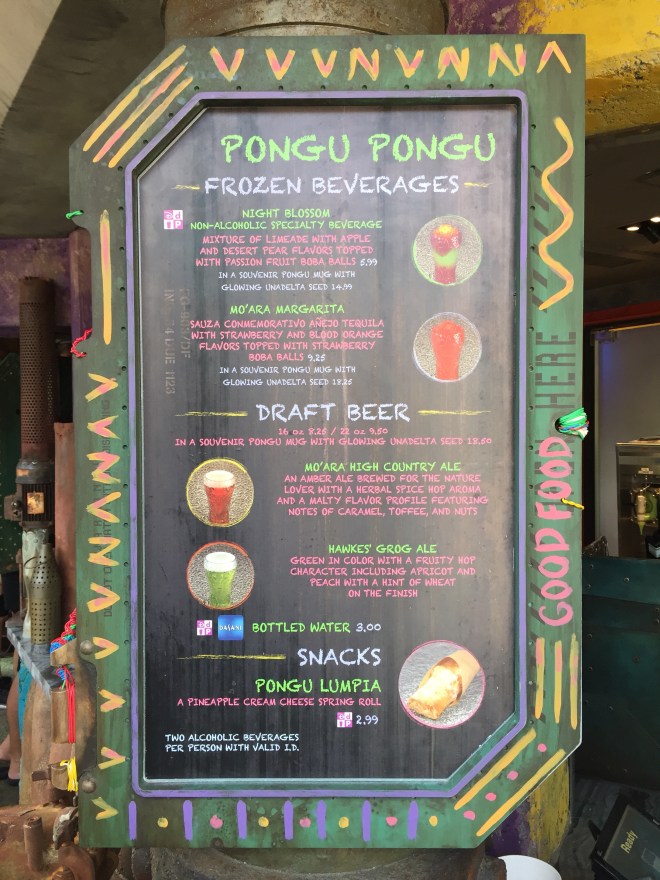 PONGU PONGU
FROZEN BEVERAGES
NIGHT BLOSSOM
NON-ALCOHOLIC SPECIALTY BEVERAGE
MIXTURE OF LIMEADE WITH APPLE
AND DESERT PEAR FLAVORS TOPPED
WITH PASSION FRUIT BOBA BALLS 5.99
IN A SOUVENIR PONGU MUG WITH
GLOWING UNADELTA SEED 14.99
MO'ARA MARGARITA
SAUZA CONMEMORATIVO AÑEJO TEQUILA
WITH STRAWBERRY AND BLOOD ORANGE
FLAVORS TOPPED WITH STRAWBERRY
BOBA BALLS 9.25
IN A SOUVENIR PONGU MUG WITH
GLOWING UNADELTA SEED 18.25
DRAFT BEER
16 oz 8.25 / 22 oz 9.50
IN A SOUVENIR PONGU MUG WITH GLOWING UNADELTA SEED 18.50
MO'ARA HIGH COUNTRY ALE
AN AMBER ALE BREWED FOR THE NATURE
LOVER WITH A HERBAL SPICE HOP AROMA
AND A MALTY FLAVOR PROFILE FEATURING
NOTES OF CARAMEL, TOFFEE, AND NUTS
HAWKES' GROG ALE
GREEN IN COLOR WITH A FRUITY HOP
CHARACTER INCLUDING APRICOT AND
PEACH WITH A HINT OF WHEAT
ON THE FINISH
DASANI BOTTLED WATER 3.00
SNACKS
PONGU LUMPIA
A PINEAPPLE CREAM CHEESE SPRING ROLL
2.99
TWO ALCOHOLIC BEVERAGES
PER PERSON WITH VALID I.D.
GOOD FOOD HERE
Ready